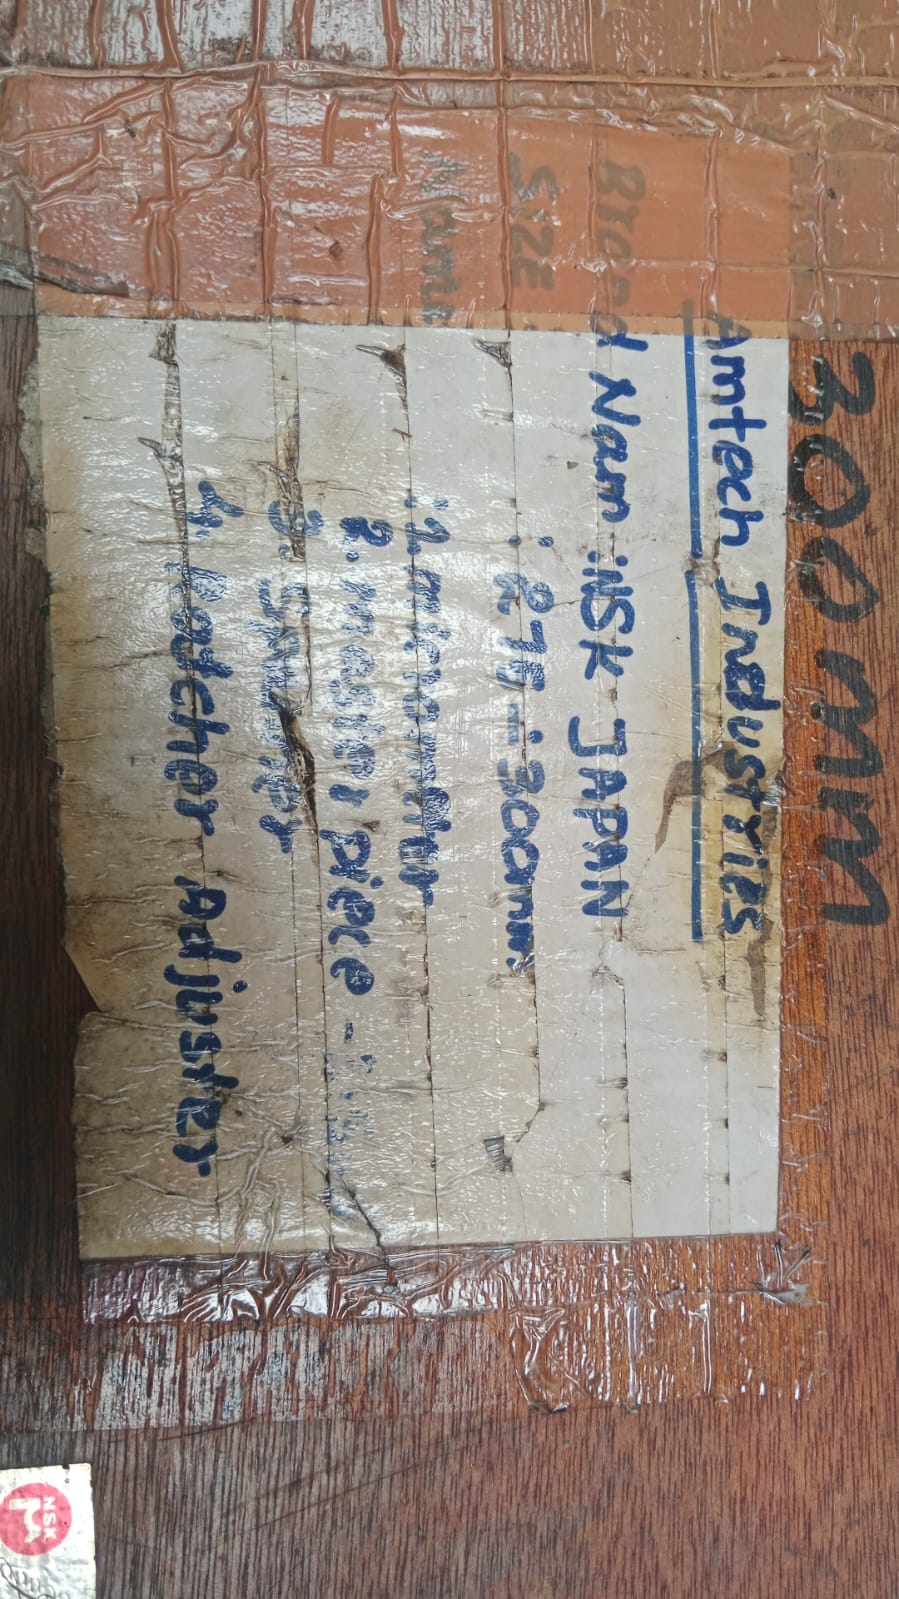 300mm
Amtech Industries
Brand Nam : NSK JAPAN
SIZE : 275 - 300mm
Name : 1. micrometer
2. master piece
3.
4. Ratcher Adjuster
NSK